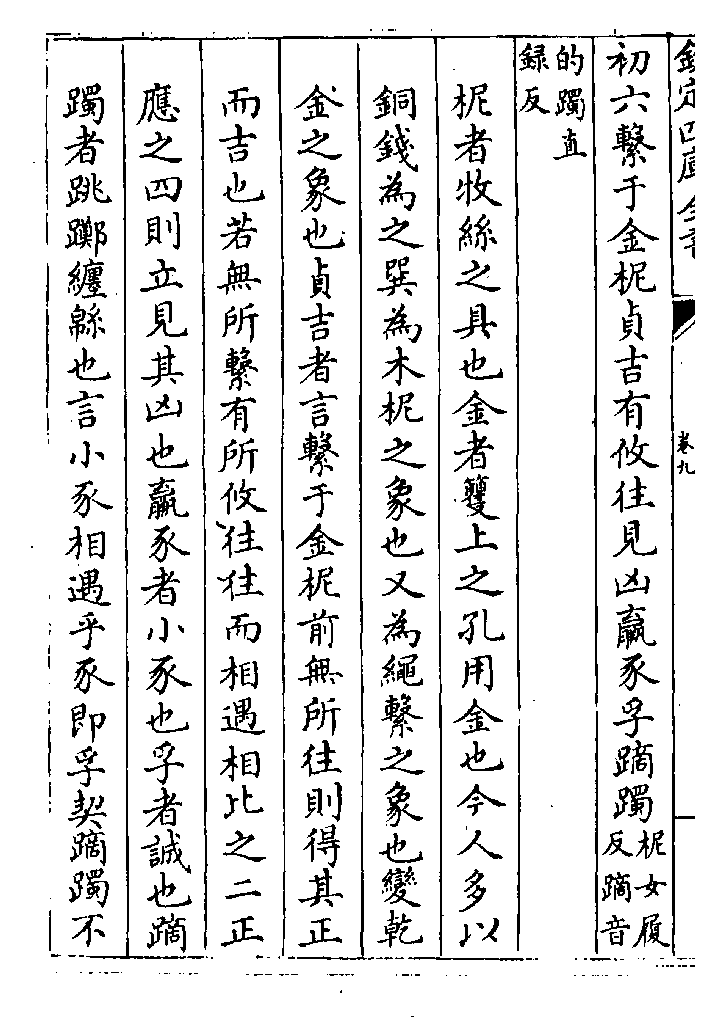 欽定四庫全書
卷九
初六繫于金柅貞吉有攸往見凶羸豕孚蹢躅柅女履反蹢音
的躅直録反
柅者牧絲之具也金者籰上之孔用金也今人多以
銅錢為之巽為木柅之象也又為繩繫之象也變乾
金之象也貞吉者言繫于金柅前無所往則得其正
而吉也若無所繫有所攸往往而相遇相比之二正
應之四則立見其凶也羸豕者小豕也孚者誠也蹢
躅者跳躑纏緜也言小豕相遇乎豕即孚契蹢躅不